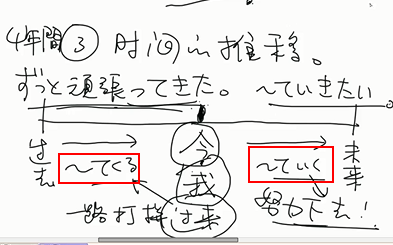 4年間③ 时间の推移。
ずっと頑張ってきた。 〜ていきたい
过去 今 未来
〜てくる 我 〜ていく
一路打拼过来 努力下去！